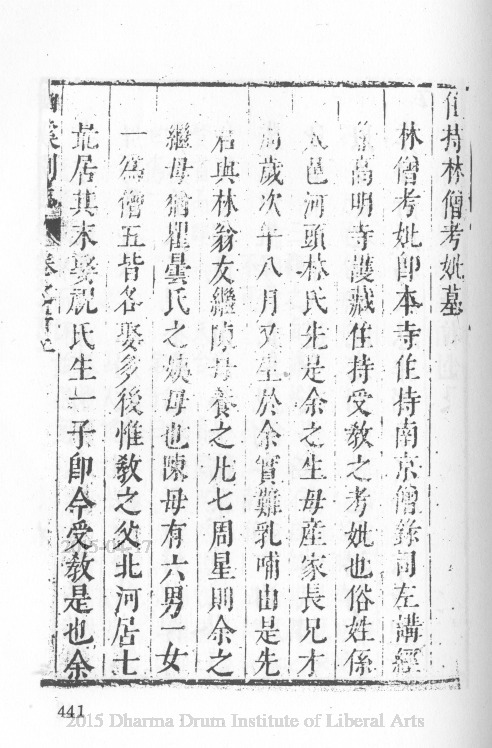 住持林僧考妣墓
林僧考妣即本寺住持南京僧錄司左講經
高明寺護藏住持受教之考妣也俗姓係
邑河頭林氏先是余之生母產家長兄才
歲次午八月又生於余實難乳哺由是先
君與林翁友繼陳母養之凡七周星則余之
繼母猶瞿曇氏之姨母也陳母有六男一女
一為僧五皆各娶多後惟教之父北河居士
最居其末娶祝氏生一子即今受教是也余
卷之
441
2015 Dharma Drum Institute of Liberal Arts